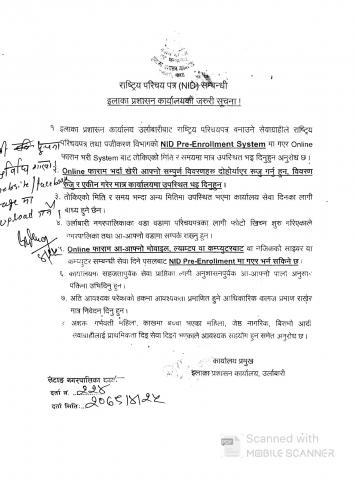 राष्ट्रिय परिचय पत्र (NID) सम्बन्धी
इलाका प्रशासन कार्यालयको जरुरी सूचना !
१. इलाका प्रशासन कार्यालय उर्लाबारीबाट राष्ट्रिय परिचयपत्र बनाउने सेवाग्राहीले राष्ट्रिय
परिचयपत्र तथा पञ्जीकरण विभागको NID Pre-Enrollment System मा गएर Online
फाराम भरी System बाट तोकिएको मिति र समयमा मात्र उपस्थित भइ दिनुहुन अनुरोध छ।
Online फाराम भर्दा खेरी आफ्नो सम्पूर्ण विवरणहरु दोहोर्याएर रुजु गर्नु हुन, विवरण
रुजु र एकीन गरेर मात्र कार्यालयमा उपस्थित भइ दिनुहुन।
३. तोकिएको मिति र समय भन्दा अन्य मितिमा उपस्थित भएमा कार्यालय सेवा दिनका लागी
बाध्य हुने छैन।
४. उर्लाबारी नगरपालिकाका वडा वडामा परिचयपत्रका लागी फोटो खिच्न शुरु गरिएकाले
नगरपालिका तथा आ-आफ्नो वडामा सम्पर्क राख्नु हुन।
५. Online फाराम आ-आफ्नो मोबाइल, ल्यापटप वा कम्प्युटरबाट वा नजिकको साइबर वा
कम्प्युटर सम्बन्धी सेवा दिने पसलबाट NID Pre-Enrollment मा गएर भर्न सकिने छ।
६. कार्यालयमा सहजतापूर्वक सेवा प्राप्तिका लागी अनुशासनपूर्वक आ-आफ्नो पालो अनुसार
पंक्तिमा उभिदिनु हुन।
७. अति आवश्यक परेकाको हकमा आवश्यकता प्रमाणित हुने आधिकारिक कागज प्रमाण राखेर
मात्र निवेदन दिनु हुन।
८. अशक्त, गर्भवती महिला, काखमा बच्चा भएका महिला, जेष्ठ नागरिक, बिरामी आदी
सेवाग्राहीलाई प्राथमिकता दिइ सेवा दिइने भएकाले आवश्यक सहयोग हुन समेत अनुरोध छ।
website/facebook
page मा
upload गर्ने।
कार्यालय प्रमुख
इलाका प्रशासन कार्यालय, उर्लाबारी
दर्ता नं.
दर्ता मिति:
Scanned with
MOBILE SCANNER